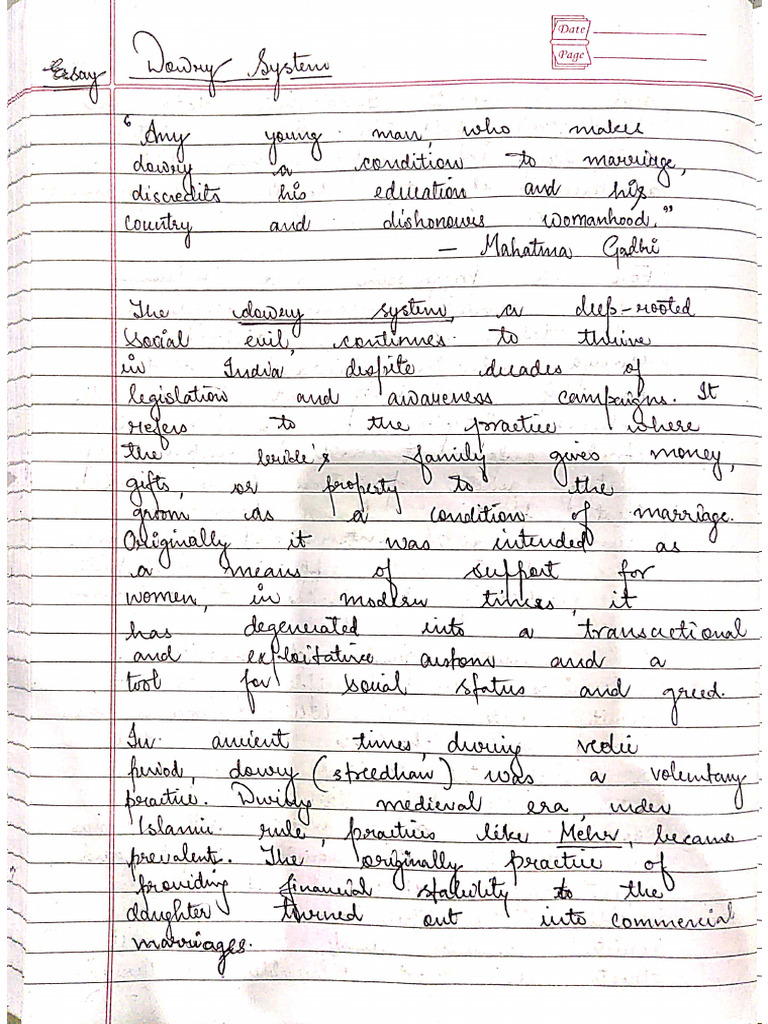 Date
Page
Essay Dowry System
"Any young man, who makes
dowry a condition to marriage,
discredits his education and his
country and dishonours womanhood."
— Mahatma Gadhi
The dowry system, a deep-rooted
social evil, continues to thrive
in India despite decades of
legislation and awareness campaigns. It
refers to the practice where
the bride's family gives money,
gifts, or property to the
groom as a condition of marriage.
Originally it was intended as
a means of support for
women, in modern times, it
has degenerated into a transactional
and exploitative custom and a
tool for social status and greed.
In ancient times, during vedic
period, dowry (streedhan) was a voluntary
practice. During medieval era, under
Islamic rule, practices like Meher, became
prevalent. The originally practice of
providing financial stability to the
daughter turned out into commercial
marriages.